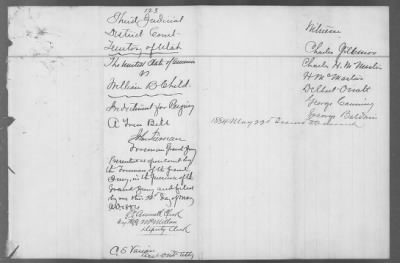 193
Third Judicial
District Court
Territory of Utah
The United States of America
vs
William B Child
Indictment for Perjury
A True Bill
Foreman Grand Jury
Presented in open court by
the Foreman of the Grand
Jury, in the presence of the
Grand Jury and filed
by me this 22d Day of May
AD 1884
Clerk
By H G McMillan
Deputy Clerk
C S Varian
Asst US Atty
Witnesses
Charles Gilmor
Charles H. McMaster
H McMaster
Delbert
George Canning
George Baldwin
1884 May 22d